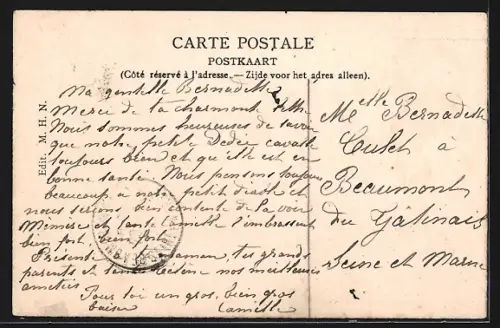 CARTE POSTALE
POSTKAART
(Côté réservé à l'adresse. — Zijde voor het adres alleen).
Edit. M. H. N.
Ma gentille Bernadette
Merci de ta charmante
Nous sommes heureuses de savoir
que notre petite Dédée
toujours bien et qu'elle est en
bonne santé. Nous pensons toujours
beaucoup à notre petit diable et
nous serions bien contente de la voir
Mémère et tante Camille t'embrassent
bien fort, bien fort
Présente maman, tes grands
parents et tante nos meilleures
amitiés
Pour toi un gros, bien gros
baiser Camille
Melle Bernadette
Culet à
Beaumont
du Gâtinais
Seine et Marne